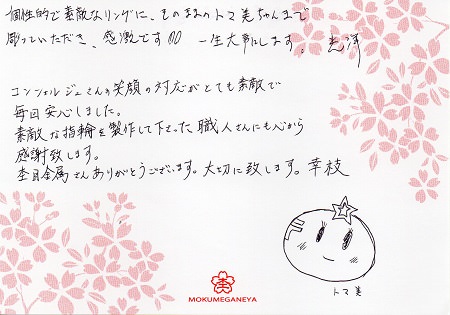 個性的で素敵なリングに、そのままのトマ美ちゃんまで
彫っていただき、感激です 一生大事にします。 光洋
コンシェルジュさんの笑顔の対応がとても素敵で
毎回安心しました。
素敵な指輪を製作して下さった職人さんにも心から
感謝致します。
杢目金属さんありがとうございます。大切に致します。幸枝
トマ美
MOKUMEGANEYA